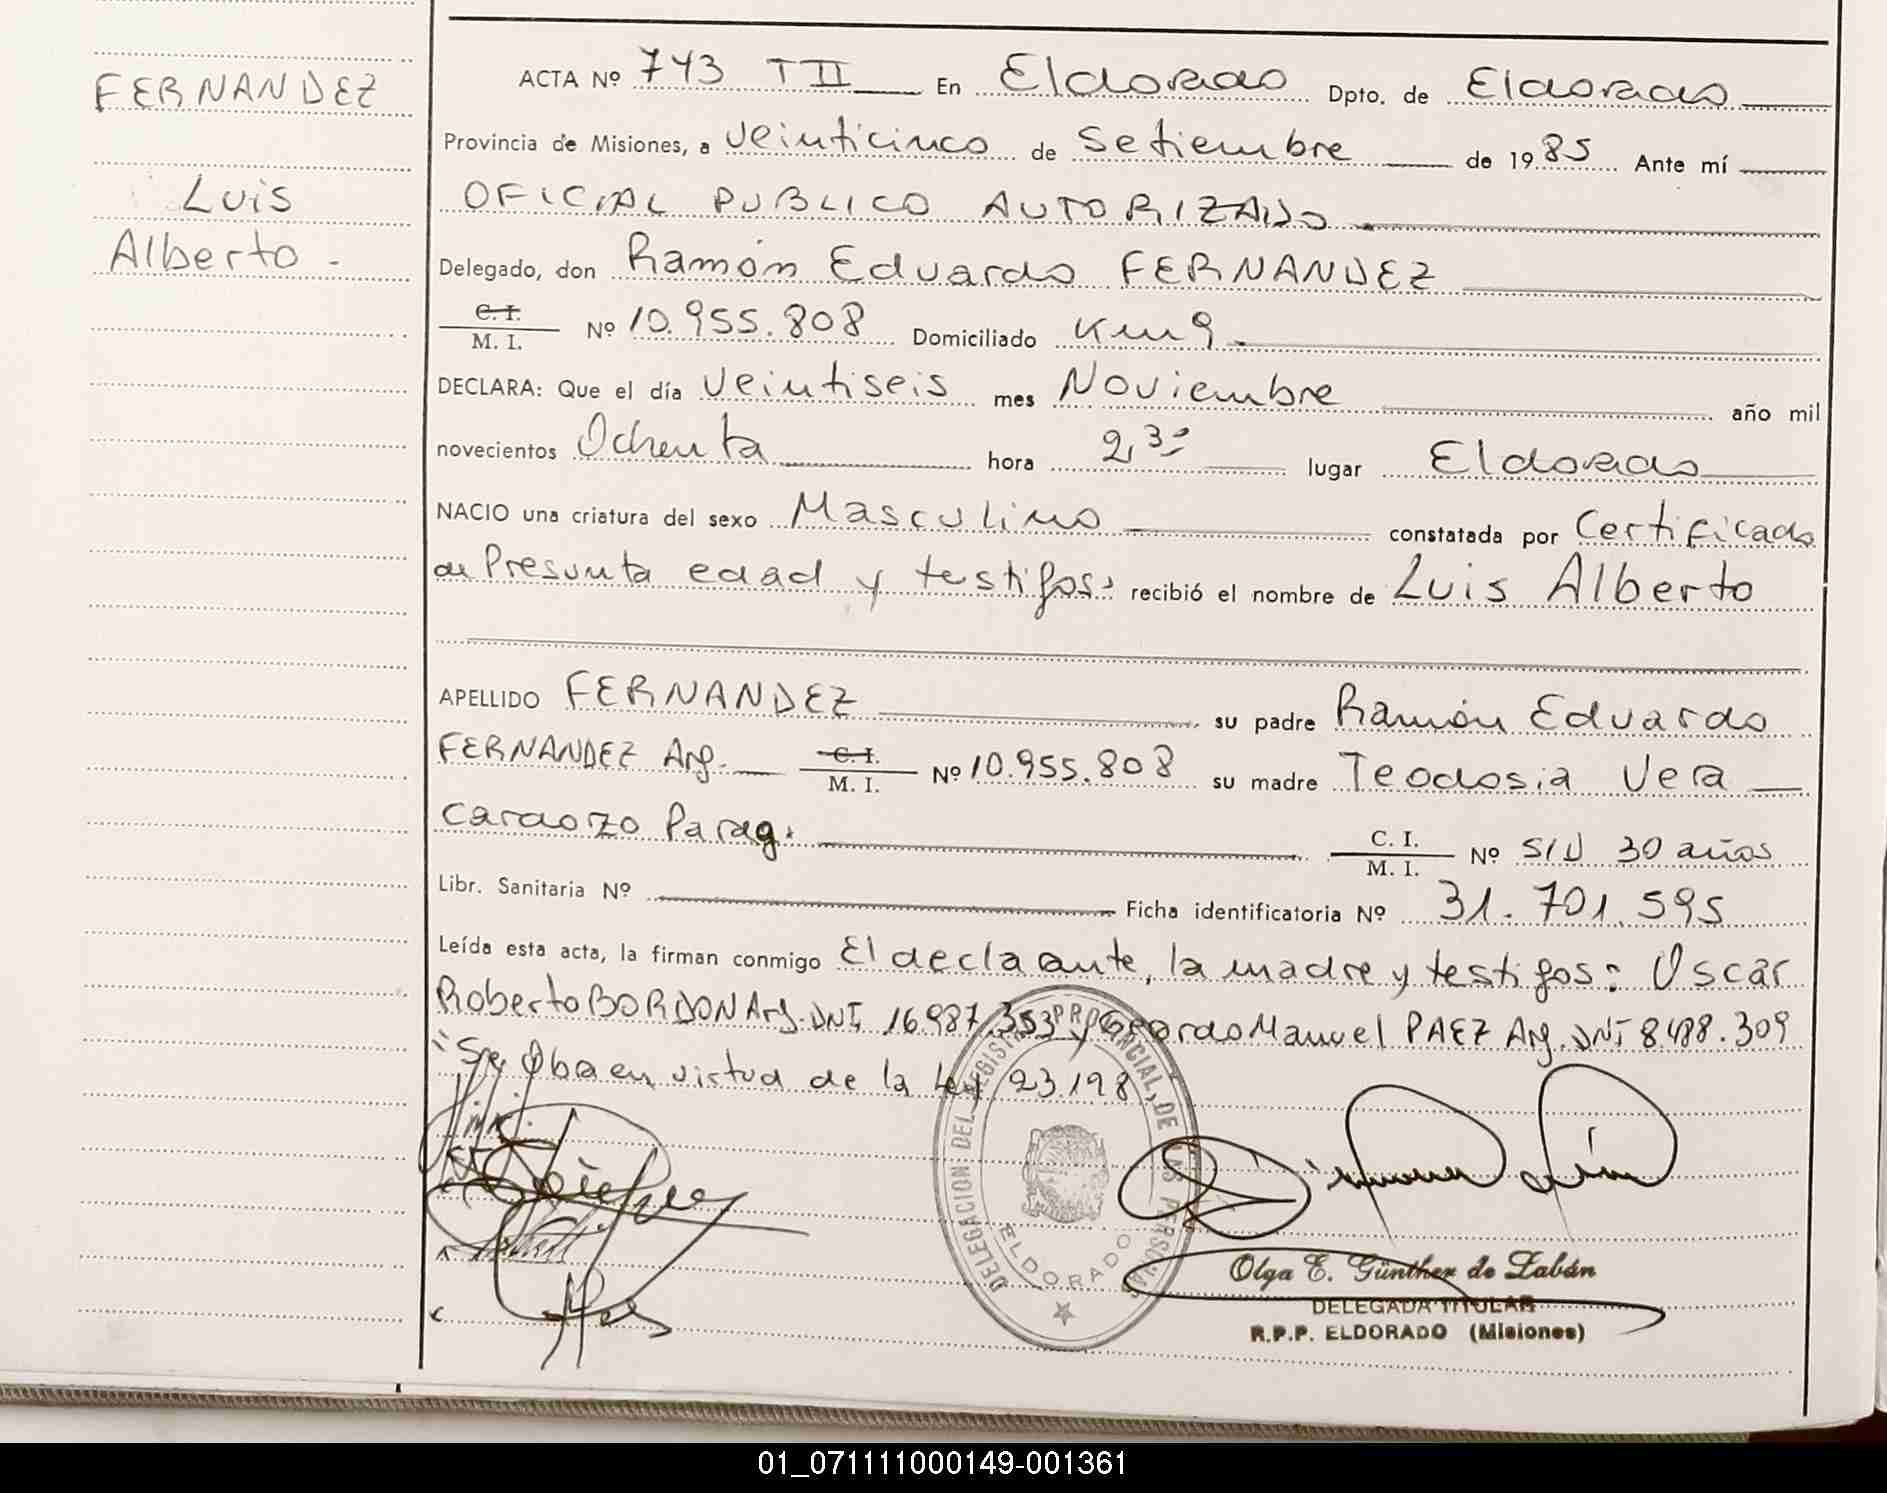 FERNANDEZ
Luis
Alberto -
ACTA Nº 743 TII En Eldorado Dpto. de Eldorado
Provincia de Misiones, a veinticinco de Setiembre de 1985 Ante mí
OFICIAL PUBLICO AUTORIZADO
Delegado, don Ramón Eduardo FERNANDEZ
C. I.
M. I. Nº 10.955.808 Domiciliado Km 9.
DECLARA: Que el día veintiseis mes Noviembre año mil
novecientos Ochenta hora 2,30 lugar Eldorado
NACIO una criatura del sexo Masculino constatada por Certificado
de Presunta edad y testigos: recibió el nombre de Luis Alberto
APELLIDO FERNANDEZ su padre Ramón Eduardo
FERNANDEZ Arg. C. I. M. I. Nº 10.955.808 su madre Teodosia Vera
Cardozo Parag. C. I. M. I. Nº S/D 30 años
Libr. Sanitaria Nº Ficha identificatoria Nº 31.701.595
Leída esta acta, la firman conmigo El declaante, la madre y testigos: Oscar
Roberto BORDON Arg. DNI 16.987.353 y Gerardo Manuel PAEZ Arg. DNI 8.488.309
en virtud de la Ley 23.198
DELEGACION DEL REGISTRO PROVINCIAL DE LAS PERSONAS
ELDORADO
Olga E. Günther de Zabán
DELEGADA TITULAR
R.P.P. ELDORADO (Misiones)
01_071111000149-001361